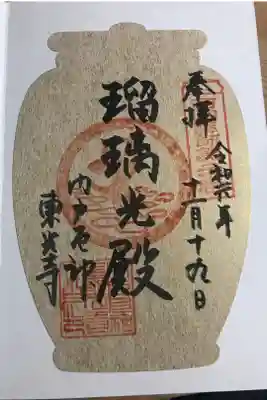 奉拝
令和元年
十一月十九日
瑠璃光殿
石神
東光寺